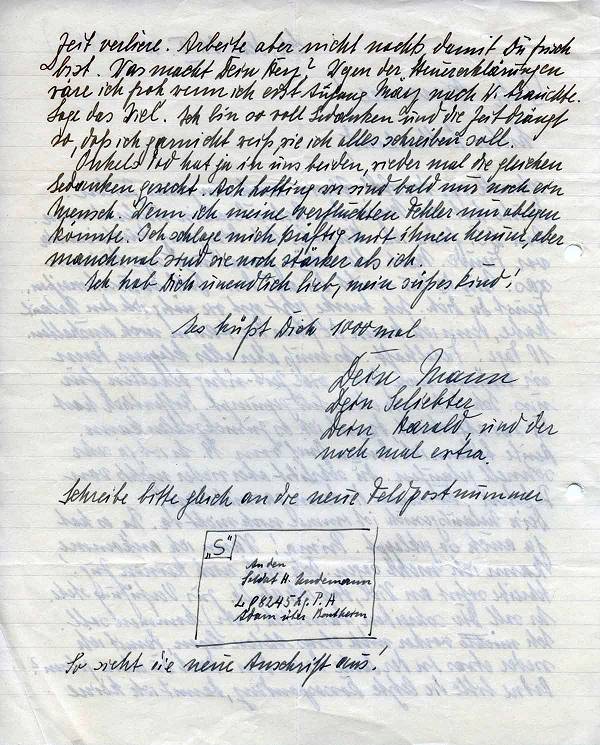 Zeit verliere. Arbeite aber nicht nachts, damit Du frisch
bist. Was macht Dein Herz? Wegen der Steuererklärungen
wäre ich froh wenn ich erst Anfang März nach W. brauchte.
Sage das Ziel. Ich bin so voll Gedanken und die Zeit drängt
so, daß ich garnicht weiß, wie ich alles schreiben soll.
Onkels Tod hat ja in uns beiden, wieder mal die gleichen
Gedanken geweckt. Ach hoffing wir sind bald nur noch ein
Mensch. Wenn ich meine verfluchten Fehler nur ablegen
könnte. Ich schlage mich kräftig mit ihnen herum, aber
manchmal sind sie noch stärker als ich.
Ich hab Dich unendlich lieb, mein süßes Kind!
Es küßt Dich 1000 mal
Dein Mann
Dein Geliebter
Dein Harald, und der
noch mal extra.
Schreibe bitte gleich an die neue Feldpostnummer
„S“
An den
Soldat H. Lindemann
L 98245 Lg. P. A
über
So sieht die neue Anschrift aus!